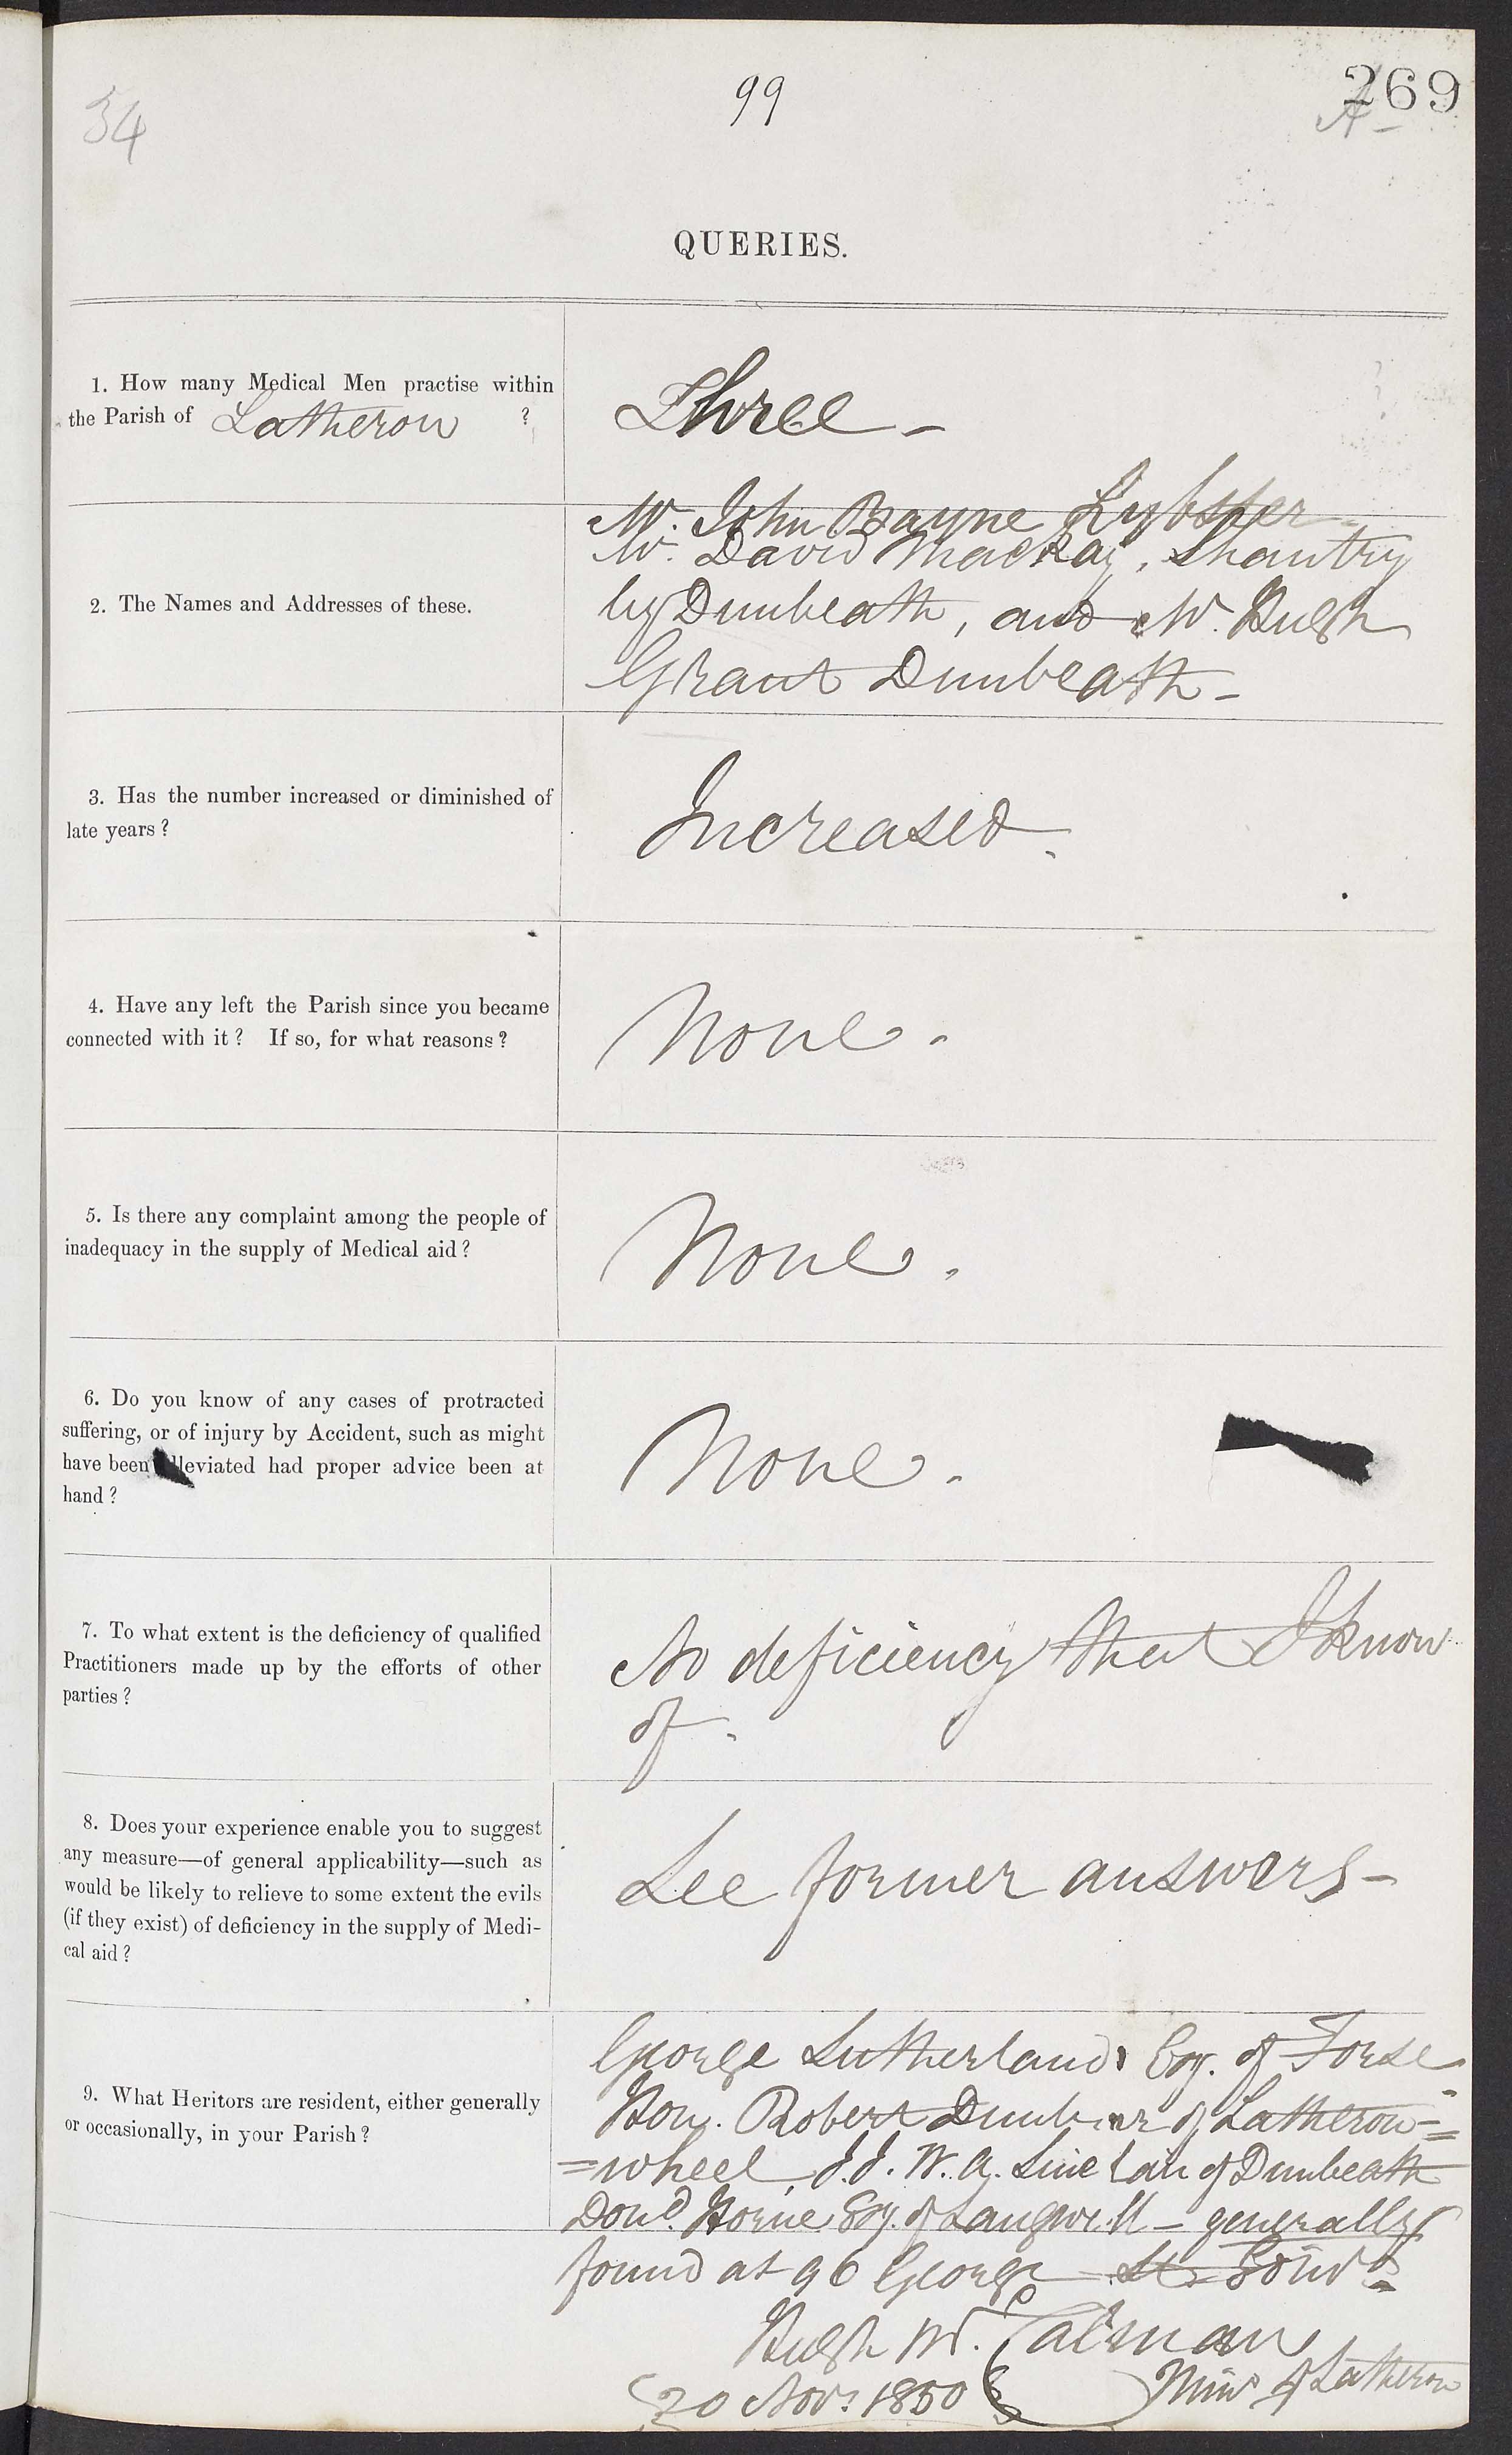 34
99
269
A-
QUERIES.
1. How many Medical Men practise within
the Parish of Latheron ?
Three -
2. The Names and Addresses of these.
Mr. John Bayne Lybster -
Mr. David Mackay, Shantry
by Dunbeath, and Mr. Hugh
Grant Dunbeath -
3. Has the number increased or diminished of
late years ?
Increased.
4. Have any left the Parish since you became
connected with it ? If so, for what reasons ?
None.
5. Is there any complaint among the people of
inadequacy in the supply of Medical aid ?
None.
6. Do you know of any cases of protracted
suffering, or of injury by Accident, such as might
have been lleviated had proper advice been at
hand ?
None.
7. To what extent is the deficiency of qualified
Practitioners made up by the efforts of other
parties ?
No deficiency that I know
of.
8. Does your experience enable you to suggest
any measure—of general applicability—such as
would be likely to relieve to some extent the evils
(if they exist) of deficiency in the supply of Medi-
cal aid ?
See former answers -
9. What Heritors are resident, either generally
or occasionally, in your Parish ?
George Sutherland Esq. of Forse
Hon. Robert Dunbar of Latheron=
=wheel, J.J. W. A. Sinclair of Dunbeath
Dond. Horne Esq. of Langwell - generally
found at 96 George St. Edinr.
Hugh M. Calman
20 Novr. 1850 Minr of Latheron